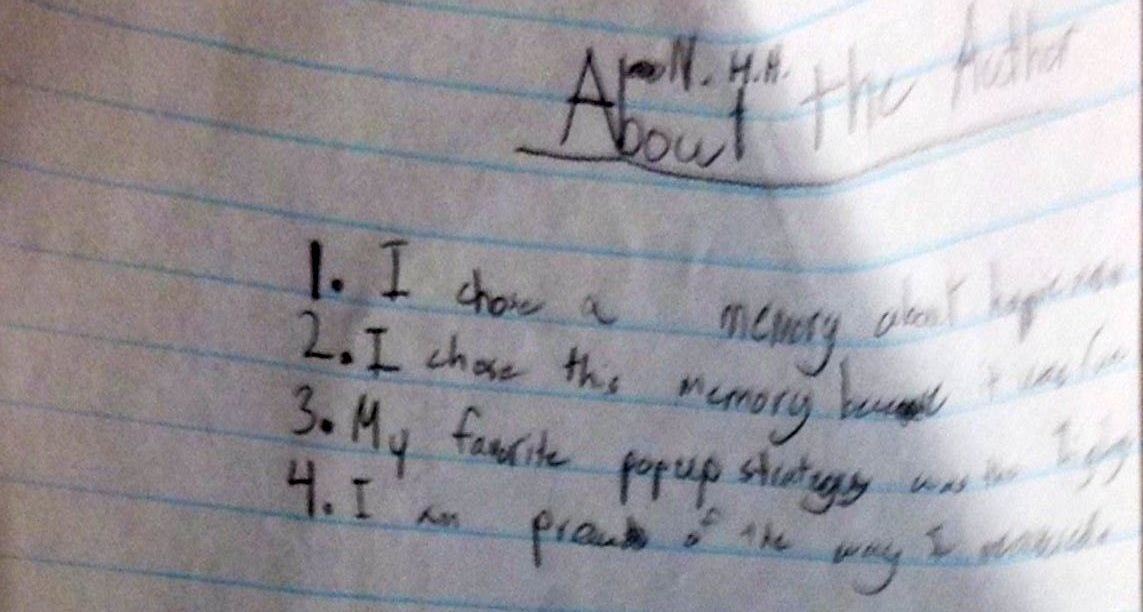 N. H.H.
About the Author
1. I chose a memory about
2. I chose this memory because it was
3. My favorite popup strategy was the
4. I am proud of the way I